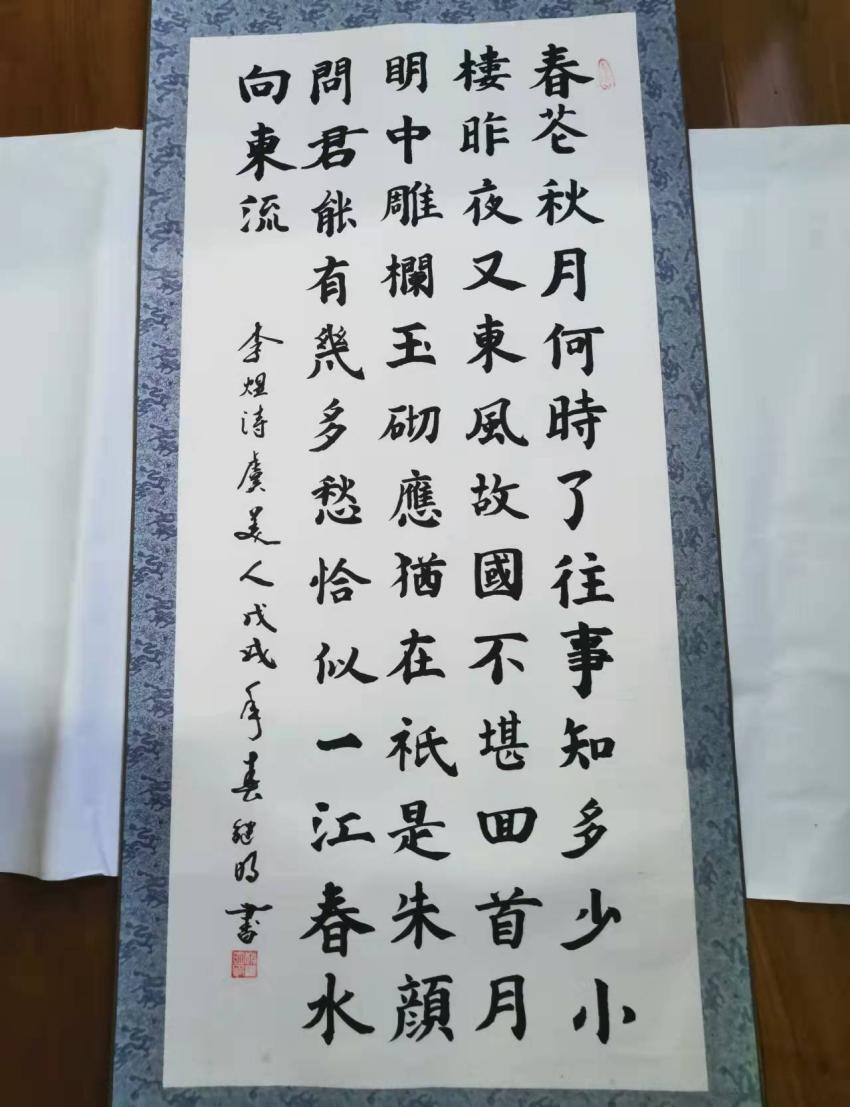 春苍秋月何時了往事知多少小
棲昨夜又東風故國不堪回首月
明中雕欄玉砌應猶在祇是朱顔
問君能有幾多愁恰似一江春水
向東流
李煜涛虞美人戊戌年春継明書